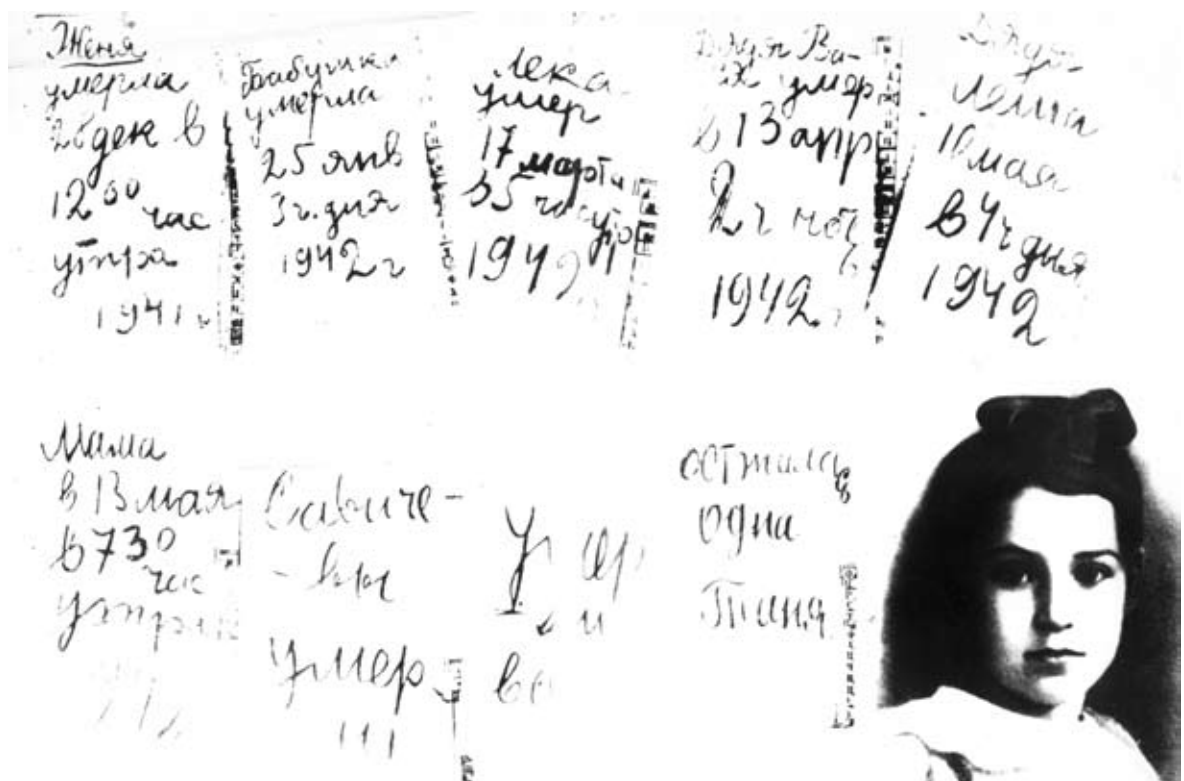 Женя
умерла
28 дек в
12 00 час
утра
1941 г
Бабушка
умерла
25 янв
3 ч. дня
1942 г
Лека
умер
17 марта
в 5 час утр
1942 г
Дядя Ва-
ся умер
в 13 апр
2 ч ноч
1942 г
Дядя
Леша
10 мая
в 4 ч дня
1942
Мама
в 13 мая
в 7 30
час
утра
Савиче-
-вы
умер
осталась
одна
Таня